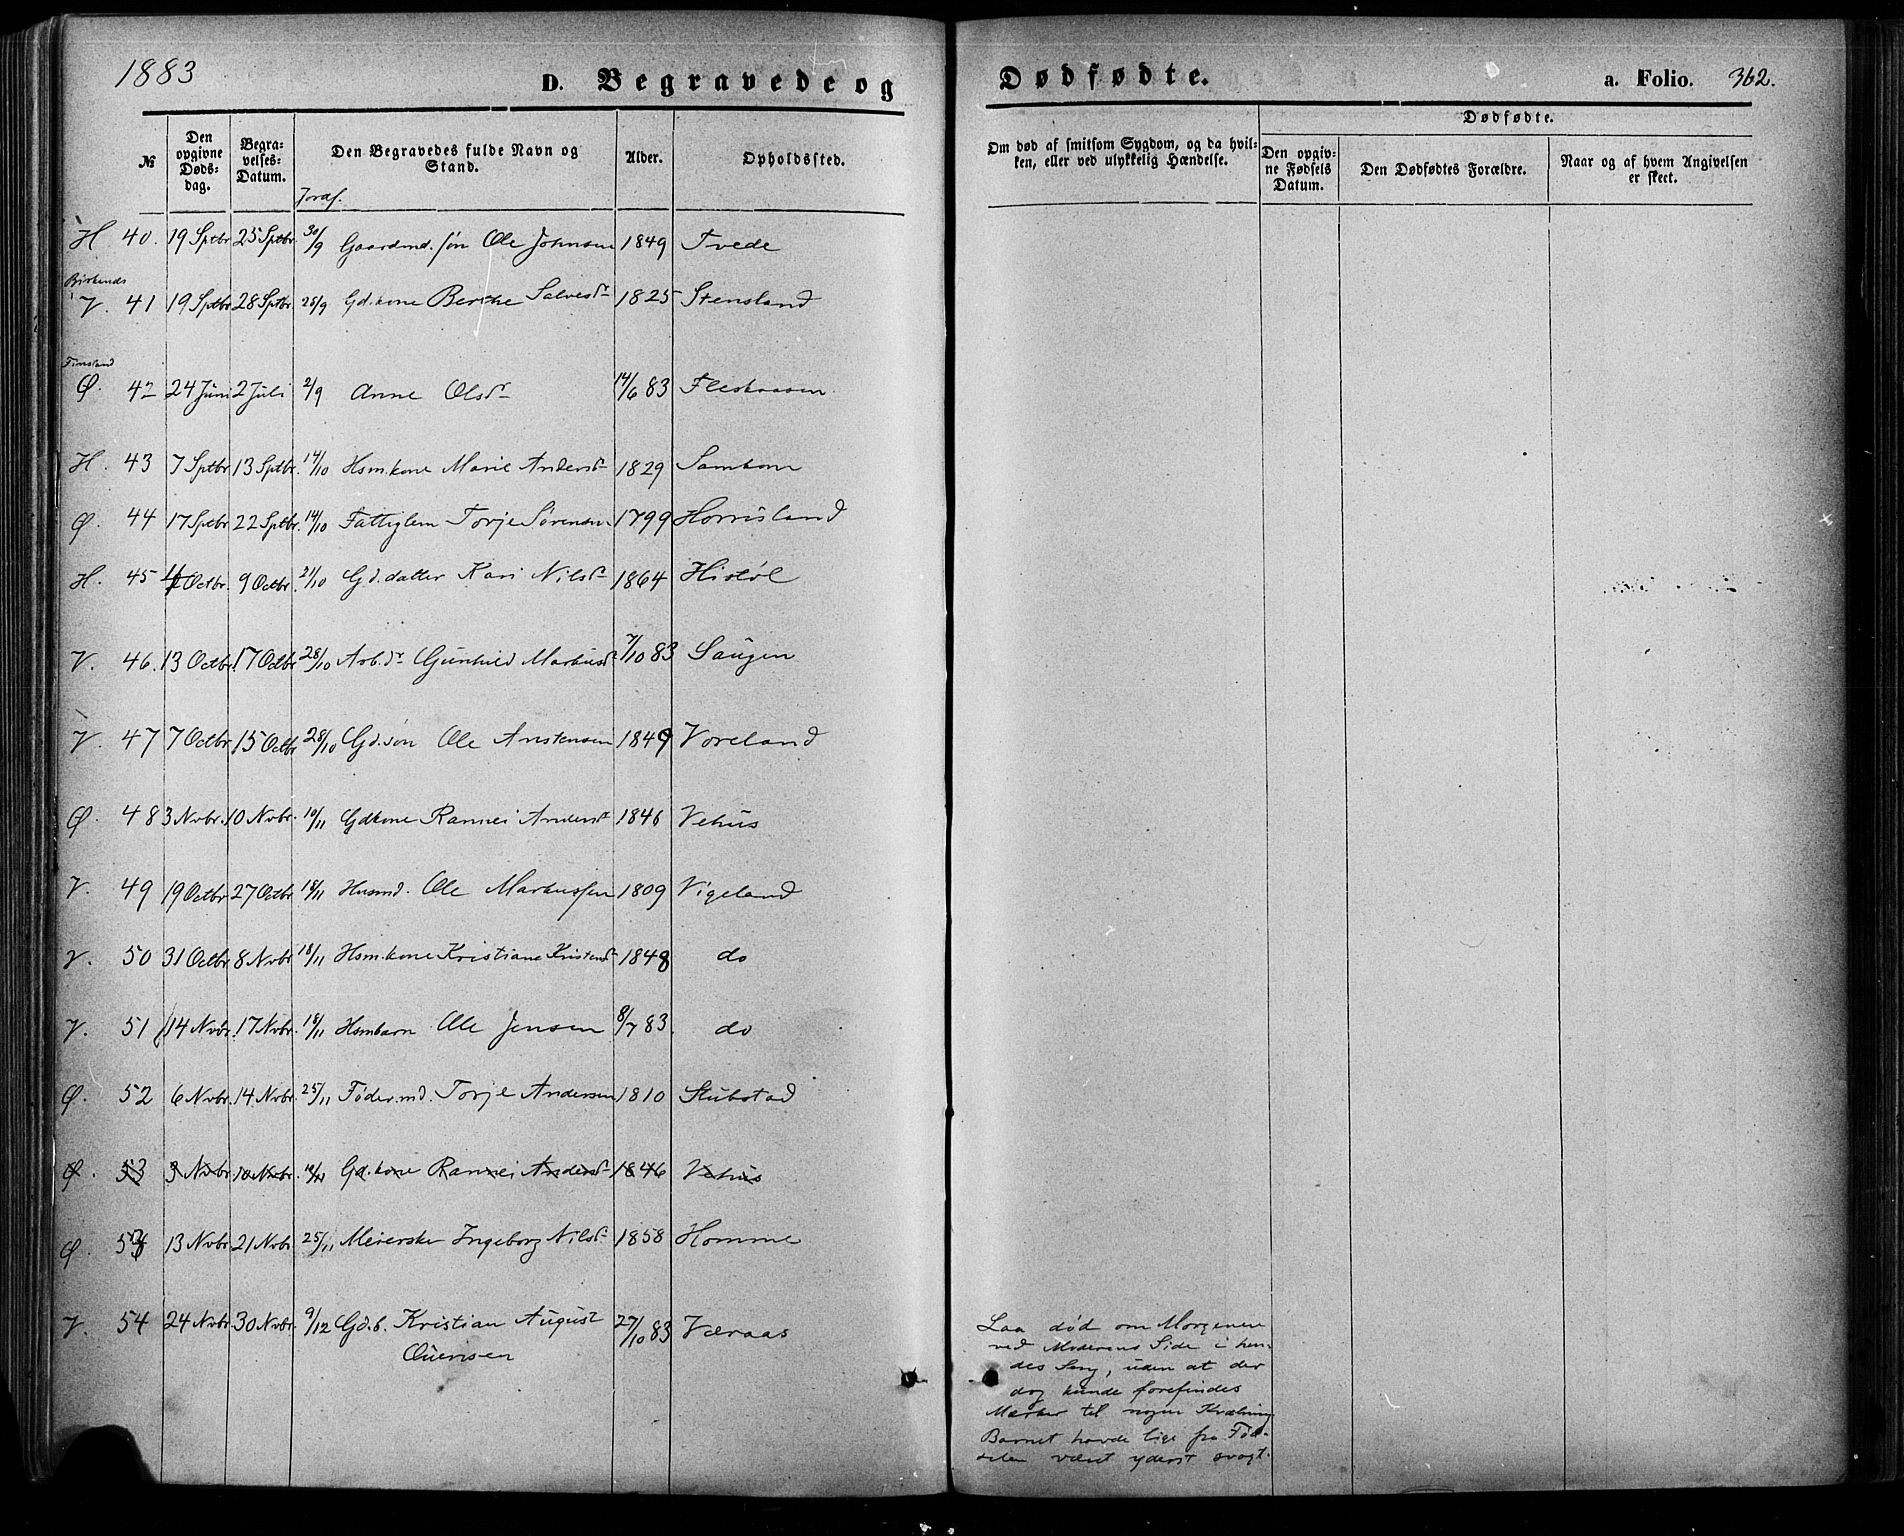 1883
D. Begravede og Dødfødte. a. Folio. 362.
№ Den opgivne Døds-dag. Begra-velses-Datum. Den Begravedes fulde Navn og Stand. Alder. Opholdssted. Om død af smitsom Sygdom, og da hvil-ken, eller ved ulykkelig Hændelse. Dødfødte.
Den opgiv-ne Fødsels Datum. Den Dødfødtes Forældre. Naar og af hvem Angivelsen er skeet.
Jordf.
H 40. 19 Sptbr 25 Sptbr. 30/9 Gaardmd. søn Ole Johnsen 1849 Tvede
Birkenes
V. 41 19 Sptbr 28 Sptbr 28/9 Gd.kone Berthe Salvesdr 1825 Stensland
Finsland
Ø. 42 24 Juni 2 Juli 2/9 Anne Olsdr 14/6 83 Fleskaasen
H. 43 7 Sptbr 13 Sptbr. 14/10 Hsm.kone Marie Andersdr 1829 Samkom
Ø. 44 17 Sptbr 22 Sptbr. 14/10 Fattiglem Torje Sørensen 1799 Horrisland
H. 45 4 Octbr. 9 Octbr. 21/10 Gd.datter Kari Nilsdr 1864 Histøl
V. 46. 13 Octbr. 17 Octbr 28/10 Arb.dr Gunhild Markusdr 7/10 83 Saugen
V. 47 7 Octbr 15 Octbr 28/10 Gd.søn Ole Anstensen 1849 Voreland
Ø. 48 3 Nvbr. 10 Nvbr. 10/11 Gdkone Rannei Andersdr 1846 Vehus
V. 49 19 Octbr 27 Octbr 18/11 Husmd. Ole Markussen 1809 Vigeland
V. 50 31 Octbr 8 Nvbr 18/11 Hsm.kone Kristiane Kristensdr 1848 do
V. 51 14 Nvbr. 17 Nvbr. 18/11 Hsmbarn Ole Jensen 8/7 83. do
Ø. 52 6 Nvbr. 14 Nvbr. 25/11 Føder.md. Torje Andersen 1810 Stubstad
Ø. 53 3 Nvbr. 10 Nvbr. 10/11 Gd.kone Rannei Andersdr 1846 Vehus
Ø. 53 13 Nvbr. 21 Nvbr 25/11 Meierske Ingeborg Nilsdr 1858 Homme
V. 54 24 Nvbr. 30 Nvbr. 9/12 Gd.b. Kristian August 27/10 83 Væraas
Ovensen
Laa død om Morgenen
ved Moderens Side i hen-
des Seng, uden at der
dog kunde forefindes
Mærker til nogen Kvælning
Barnet havde lige fra Fød-
selen været yderst svagt.